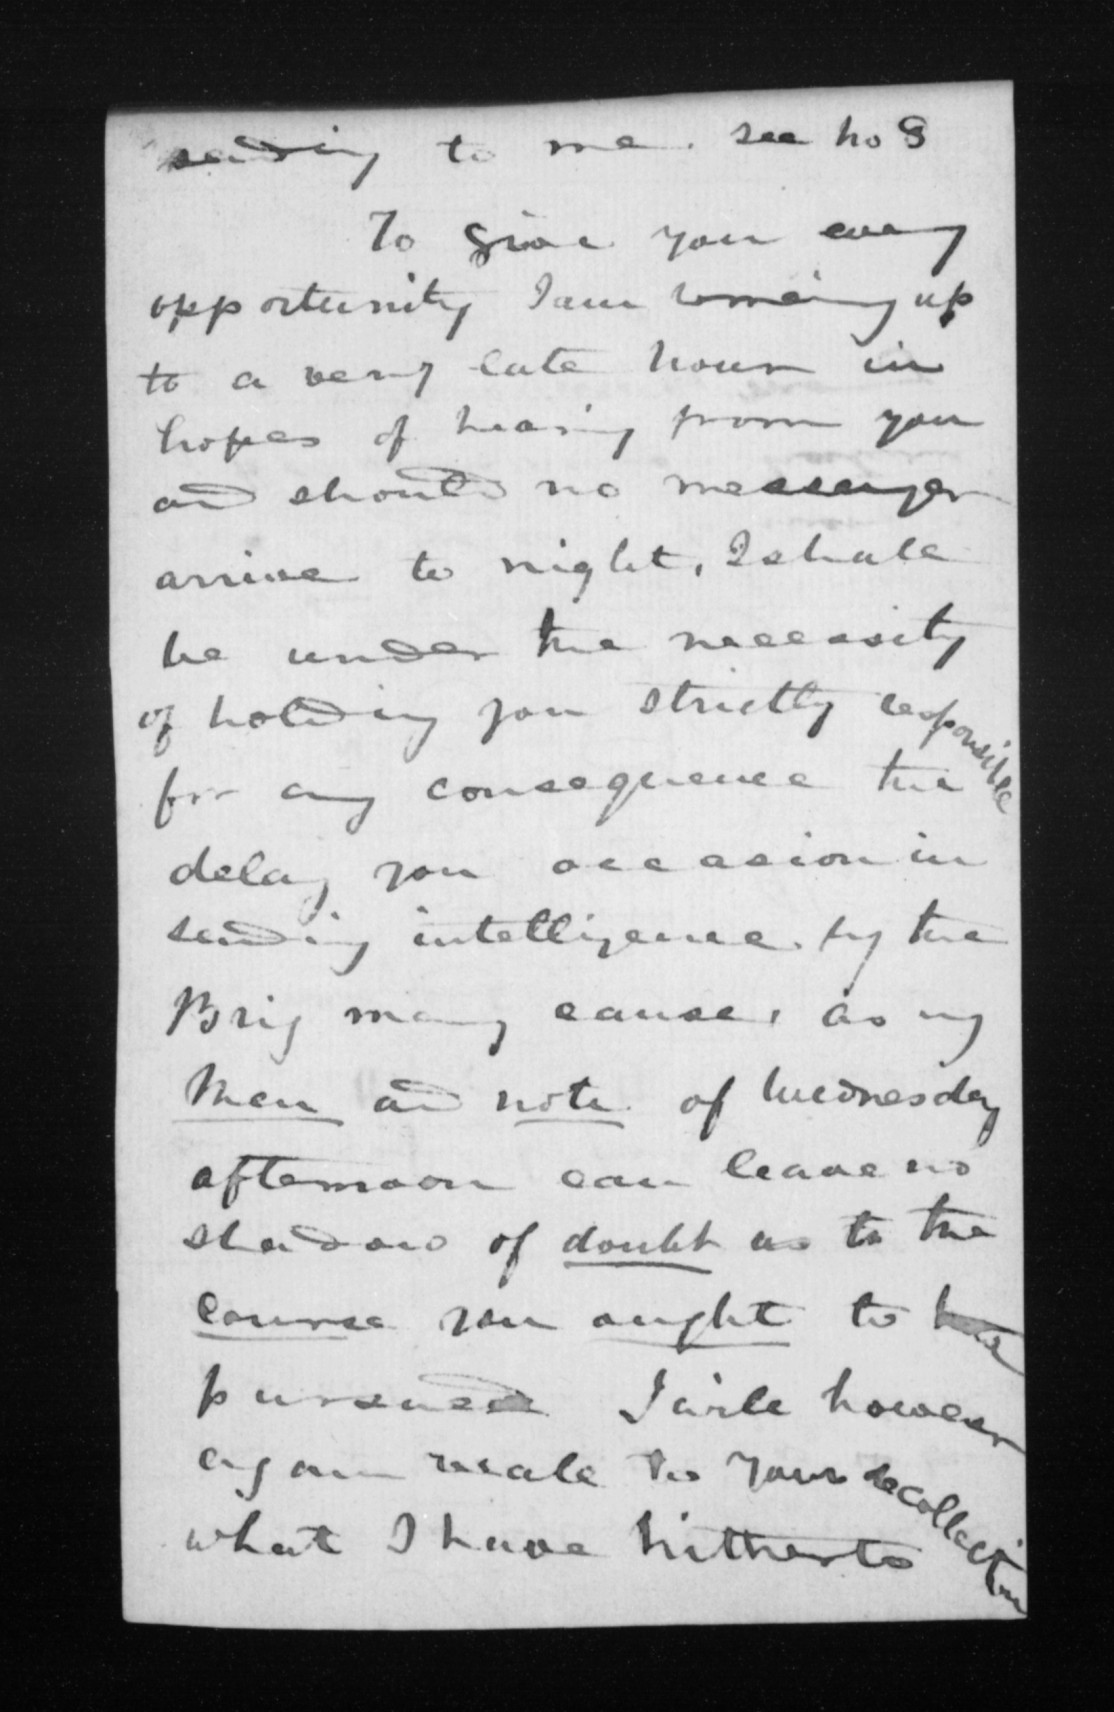 sending to me. see no 8
To give you every
opportunity I am waiting up
to a very late hour in
hopes of hearing from you
and should no messenger
arrive to night, I shall
be under the necessity
of holding you strictly responsible
for any consequence the
delay you occasion in
sending intelligence by the
Brig may cause, as my
Men and note of Wednesday
afternoon can leave no
shadow of doubt as to the
course you ought to have
pursued I will however
again recall to your recollection
what I have hitherto